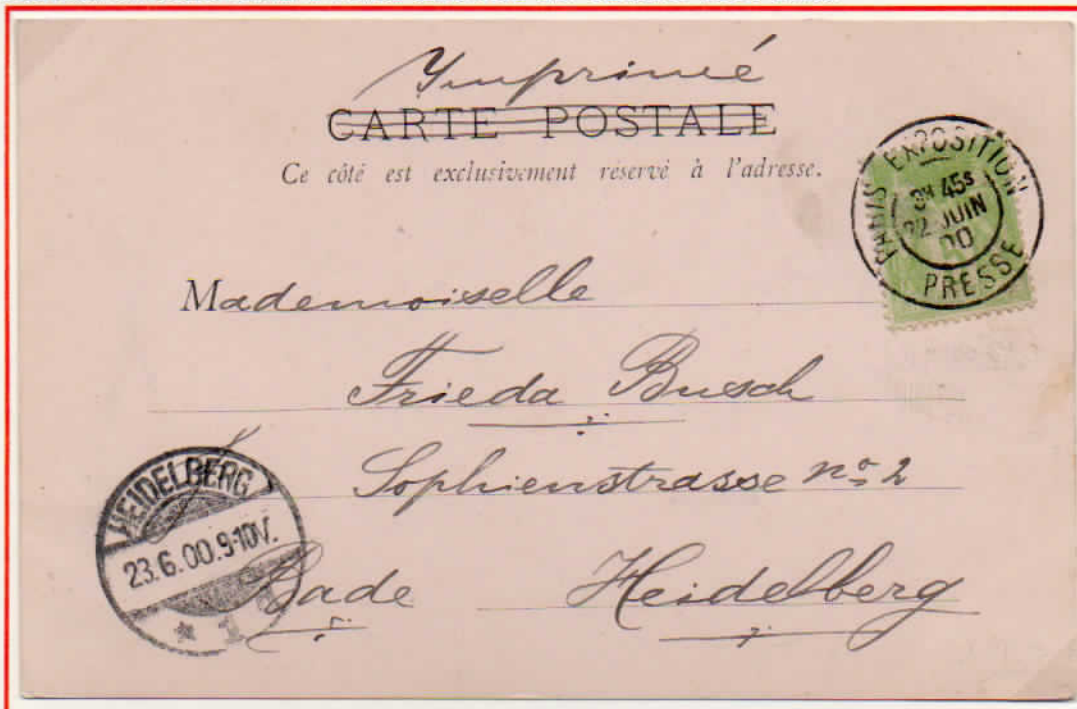 Imprimé
CARTE POSTALE
Ce côté est exclusivement réservé à l'adresse.
PARIS EXPOSITION
45s
22 JUIN
00
PRESSE
Mademoiselle
Frieda Busch
Sophienstrasse no 2
HEIDELBERG
23.6.00.9-10V.
* 1
Bade Heidelberg